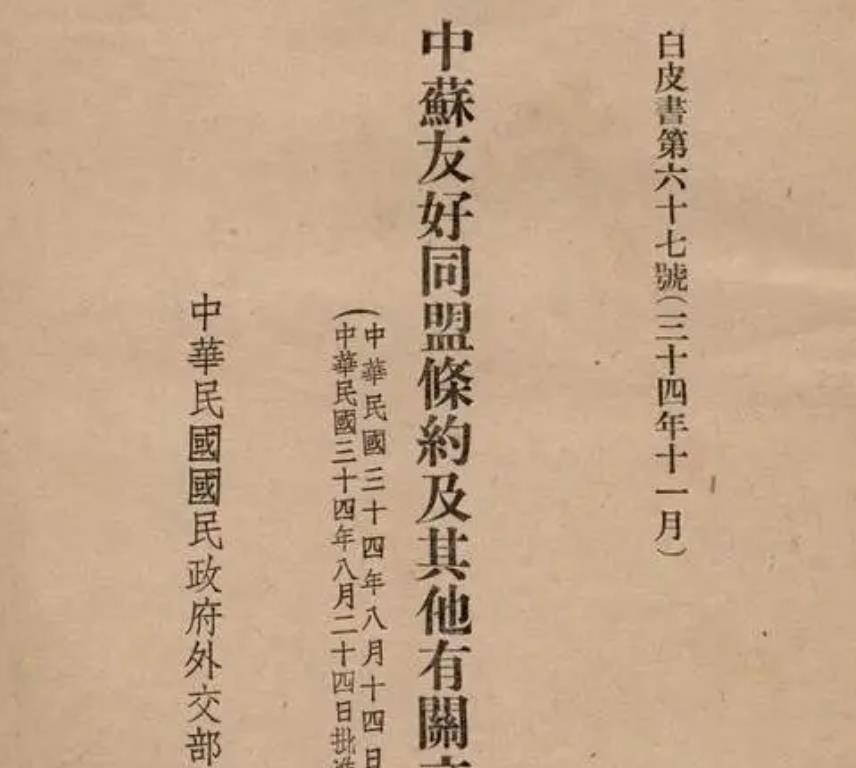 白皮書第六十七號(三十四年十一月)
中蘇友好同盟條約及其他有關
(中華民國三十四年八月十四日
(中華民國三十四年八月二十四日批准
中華民國國民政府外交部